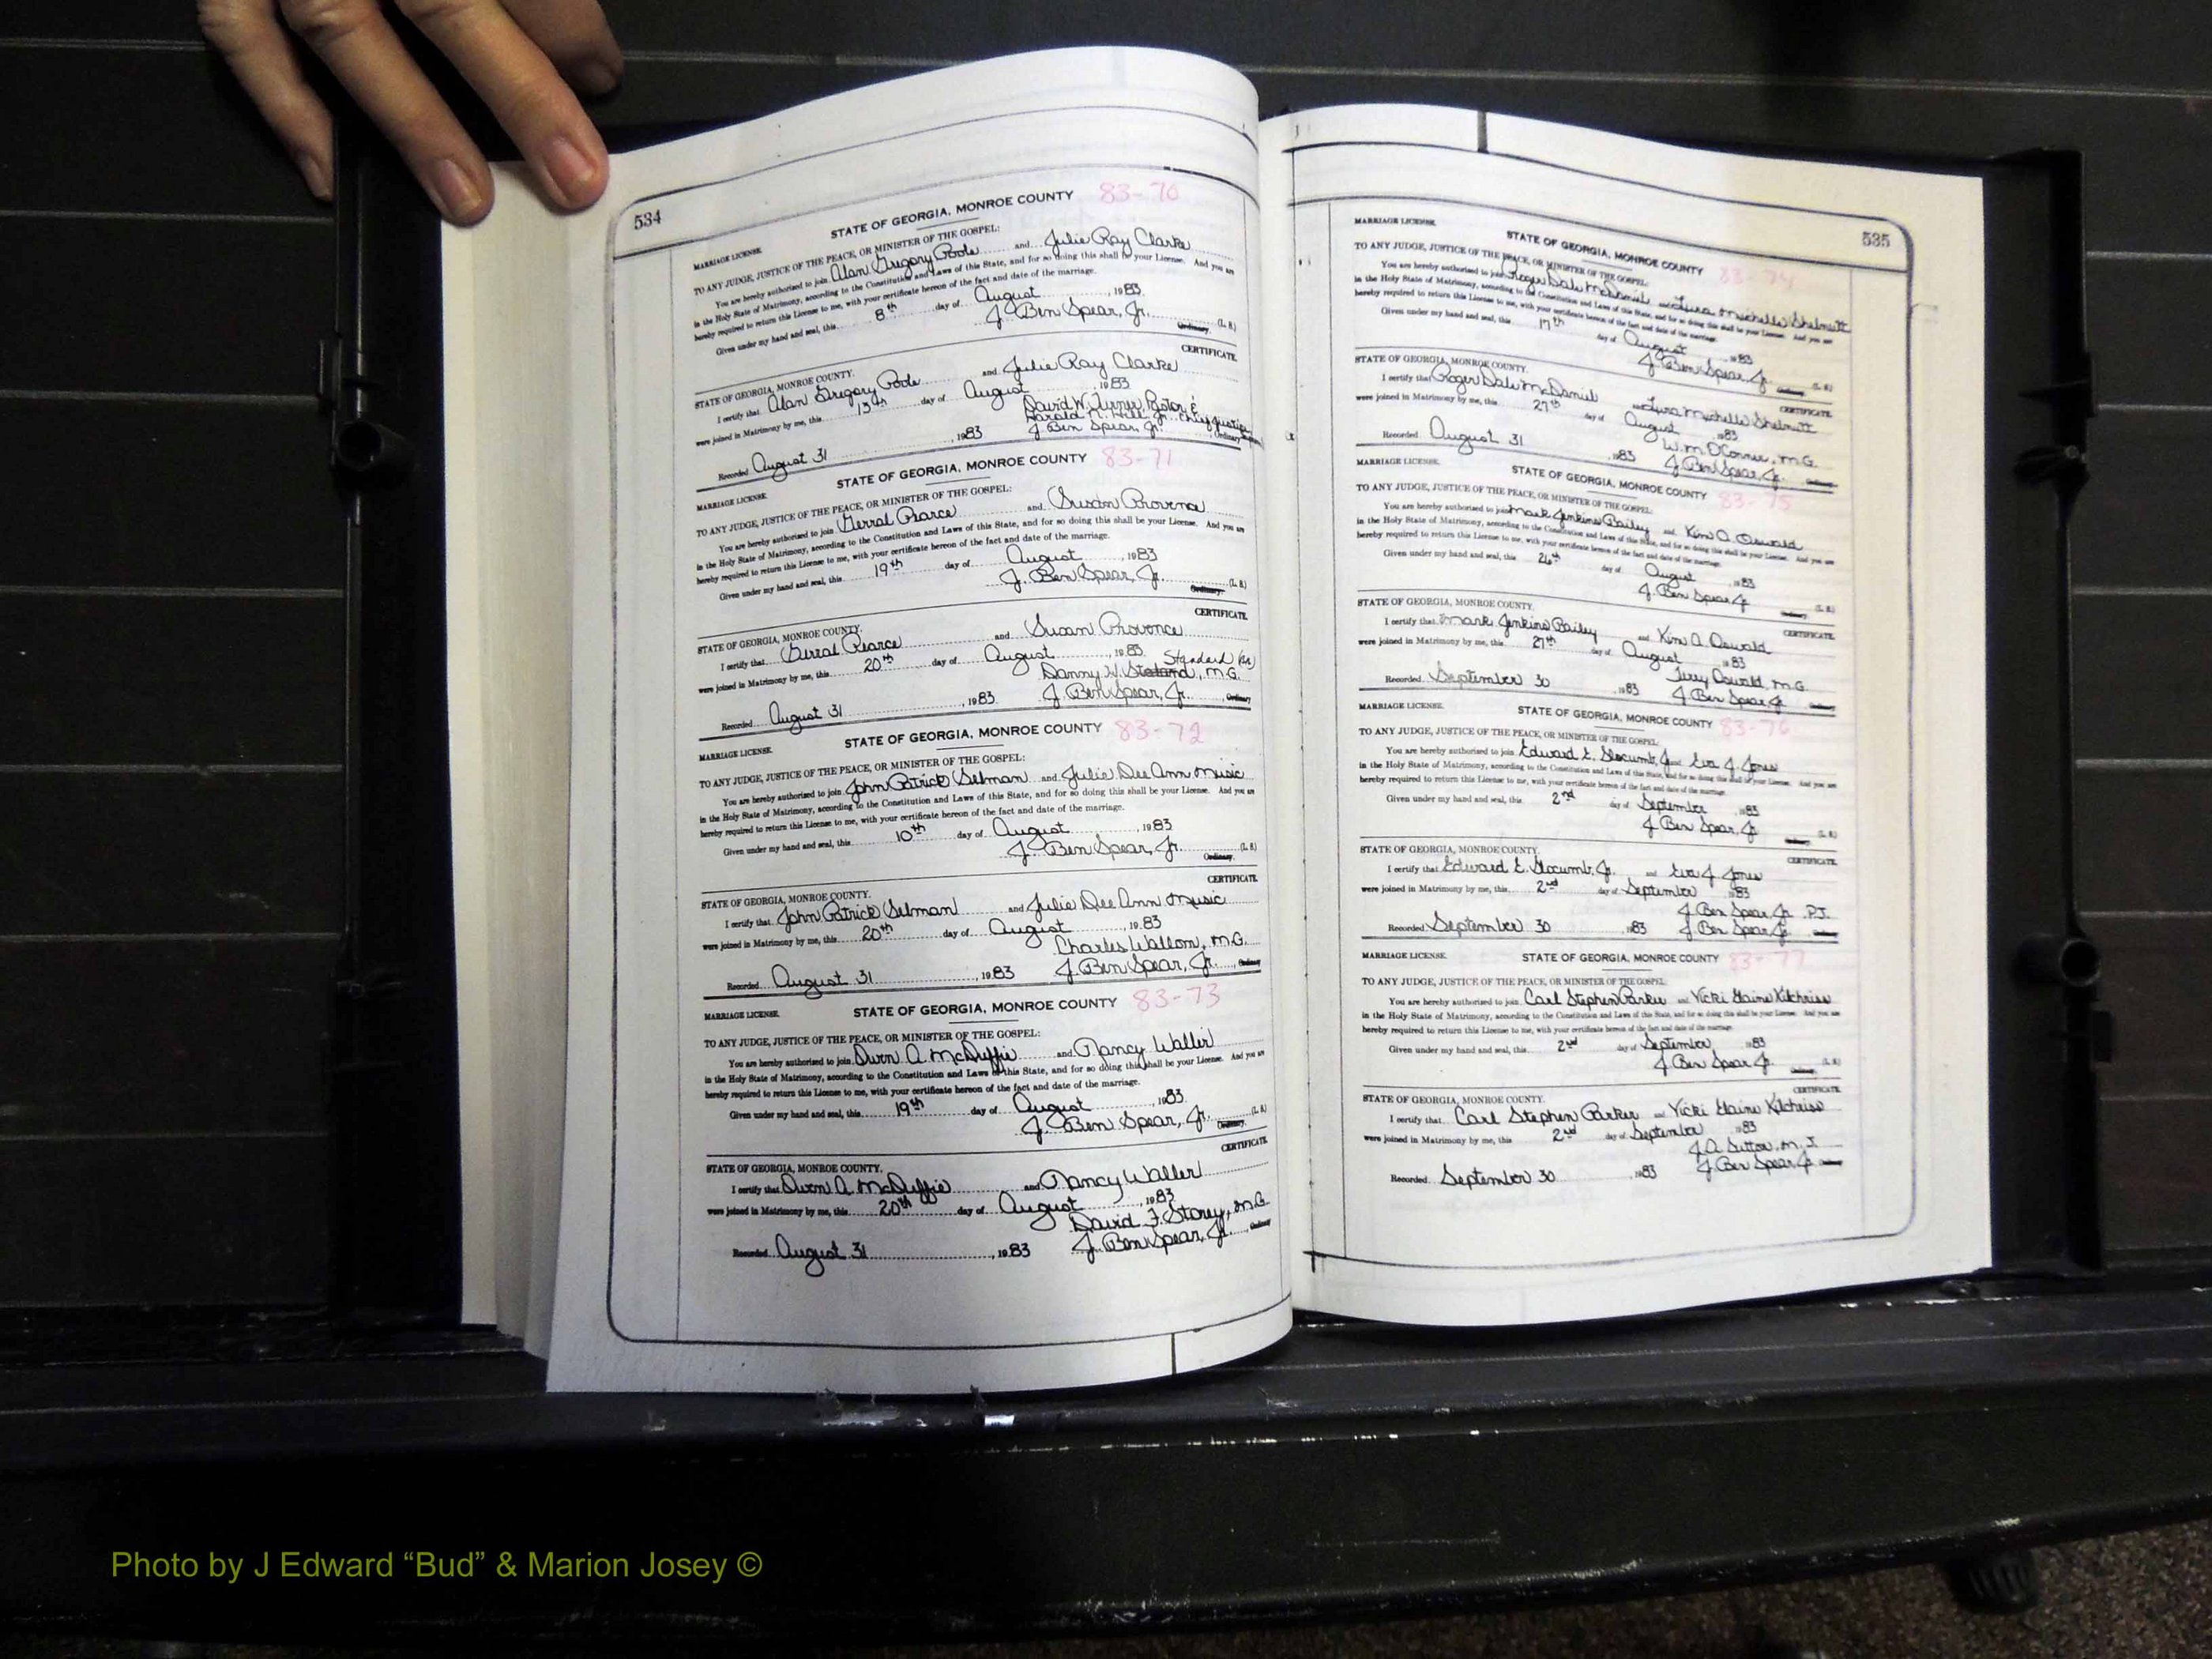 534
STATE OF GEORGIA, MONROE COUNTY 83-70
MARRIAGE LICENSE.
TO ANY JUDGE, JUSTICE OF THE PEACE, OR MINISTER OF THE GOSPEL:
You are hereby authorized to join Alan Gregory Poole and Julie Ray Clarke
in the Holy State of Matrimony, according to the Constitution and Laws of this State, and for so doing this shall be your License. And you are
hereby required to return this License to me, with your certificate hereon of the fact and date of the marriage.
Given under my hand and seal, this 8th day of August, 1983
J. Ben Spear, Jr. (L. S.)
Ordinary.
CERTIFICATE.
STATE OF GEORGIA, MONROE COUNTY.
I certify that Alan Gregory Poole and Julie Ray Clarke
were joined in Matrimony by me, this 13th day of August 1983
David W. Turner, Pastor &
Harold N. Hill, Jr., Chief Justice
Recorded August 31, 1983 J. Ben Spear, Jr., Ordinary
STATE OF GEORGIA, MONROE COUNTY 83-71
MARRIAGE LICENSE.
TO ANY JUDGE, JUSTICE OF THE PEACE, OR MINISTER OF THE GOSPEL:
You are hereby authorized to join Gerral Pearce and Susan Provence
in the Holy State of Matrimony, according to the Constitution and Laws of this State, and for so doing this shall be your License. And you are
hereby required to return this License to me, with your certificate hereon of the fact and date of the marriage.
Given under my hand and seal, this 19th day of August, 1983
J. Ben Spear, Jr. (L. S.)
Ordinary.
CERTIFICATE.
STATE OF GEORGIA, MONROE COUNTY.
I certify that Gerral Pearce and Susan Provence
were joined in Matrimony by me, this 20th day of August, 1983
Standard
Danny W., M.G.
Recorded August 31, 1983 J. Ben Spear, Jr., Ordinary
STATE OF GEORGIA, MONROE COUNTY 83-72
MARRIAGE LICENSE.
TO ANY JUDGE, JUSTICE OF THE PEACE, OR MINISTER OF THE GOSPEL:
You are hereby authorized to join John Patrick Selman and Julie Dee Ann Music
in the Holy State of Matrimony, according to the Constitution and Laws of this State, and for so doing this shall be your License. And you are
hereby required to return this License to me, with your certificate hereon of the fact and date of the marriage.
Given under my hand and seal, this 10th day of August, 1983
J. Ben Spear, Jr. (L. S.)
Ordinary.
CERTIFICATE.
STATE OF GEORGIA, MONROE COUNTY.
I certify that John Patrick Selman and Julie Dee Ann Music
were joined in Matrimony by me, this 20th day of August, 1983
Charles Wallom, M.G.
Recorded August 31, 1983 J. Ben Spear, Jr., Ordinary
STATE OF GEORGIA, MONROE COUNTY 83-73
MARRIAGE LICENSE.
TO ANY JUDGE, JUSTICE OF THE PEACE, OR MINISTER OF THE GOSPEL:
You are hereby authorized to join Owen A. McDuffie and Nancy Waller
in the Holy State of Matrimony, according to the Constitution and Laws of this State, and for so doing this shall be your License. And you are
hereby required to return this License to me, with your certificate hereon of the fact and date of the marriage.
Given under my hand and seal, this 19th day of August, 1983
J. Ben Spear, Jr. (L. S.)
Ordinary.
CERTIFICATE.
STATE OF GEORGIA, MONROE COUNTY.
I certify that Owen A. McDuffie and Nancy Waller
were joined in Matrimony by me, this 20th day of August, 1983
David F. Storey, M.G.
Recorded August 31, 1983 J. Ben Spear, Jr., Ordinary
535
MARRIAGE LICENSE.
STATE OF GEORGIA, MONROE COUNTY 83-74
TO ANY JUDGE, JUSTICE OF THE PEACE, OR MINISTER OF THE GOSPEL:
You are hereby authorized to join Roger Dale McDaniel and Lura Michelle Shelnutt
in the Holy State of Matrimony, according to the Constitution and Laws of this State, and for so doing this shall be your License. And you are
hereby required to return this License to me, with your certificate hereon of the fact and date of the marriage.
Given under my hand and seal, this 17th day of August, 1983
J. Ben Spear, Jr. (L. S.)
Ordinary.
CERTIFICATE.
STATE OF GEORGIA, MONROE COUNTY.
I certify that Roger Dale McDaniel and Lura Michelle Shelnutt
were joined in Matrimony by me, this 27th day of August 1983
W.M. O'Conner, M.G.
Recorded August 31, 1983 J. Ben Spear, Jr. Ordinary
MARRIAGE LICENSE.
STATE OF GEORGIA, MONROE COUNTY 83-75
TO ANY JUDGE, JUSTICE OF THE PEACE, OR MINISTER OF THE GOSPEL:
You are hereby authorized to join Mark Jenkins Bailey and Kim A. Oswald
in the Holy State of Matrimony, according to the Constitution and Laws of this State, and for so doing this shall be your License. And you are
hereby required to return this License to me, with your certificate hereon of the fact and date of the marriage.
Given under my hand and seal, this 26th day of August, 1983
J. Ben Spear Jr. (L. S.)
Ordinary.
CERTIFICATE.
STATE OF GEORGIA, MONROE COUNTY.
I certify that Mark Jenkins Bailey and Kim A. Oswald
were joined in Matrimony by me, this 27th day of August 1983
Terry Oswald, M.G.
Recorded September 30, 1983 J. Ben Spear Jr. Ordinary
MARRIAGE LICENSE.
STATE OF GEORGIA, MONROE COUNTY 83-76
TO ANY JUDGE, JUSTICE OF THE PEACE, OR MINISTER OF THE GOSPEL:
You are hereby authorized to join Edward E. Slocumb, Jr. and Eva J. Jones
in the Holy State of Matrimony, according to the Constitution and Laws of this State, and for so doing this shall be your License. And you are
hereby required to return this License to me, with your certificate hereon of the fact and date of the marriage.
Given under my hand and seal, this 2nd day of September, 1983
J. Ben Spear, Jr. (L. S.)
Ordinary.
CERTIFICATE.
STATE OF GEORGIA, MONROE COUNTY.
I certify that Edward E. Slocumb, Jr. and Eva J. Jones
were joined in Matrimony by me, this 2nd day of September 1983
J. Ben Spear, Jr. P.J.
Recorded September 30, 1983 J. Ben Spear Jr. Ordinary
MARRIAGE LICENSE.
STATE OF GEORGIA, MONROE COUNTY 83-77
TO ANY JUDGE, JUSTICE OF THE PEACE, OR MINISTER OF THE GOSPEL:
You are hereby authorized to join Carl Stephen Parker and Vicki Elaine Kilchriss
in the Holy State of Matrimony, according to the Constitution and Laws of this State, and for so doing this shall be your License. And you are
hereby required to return this License to me, with your certificate hereon of the fact and date of the marriage.
Given under my hand and seal, this 2nd day of September 1983
J. Ben Spear Jr. (L. S.)
Ordinary.
CERTIFICATE.
STATE OF GEORGIA, MONROE COUNTY.
I certify that Carl Stephen Parker and Vicki Elaine Kilchriss
were joined in Matrimony by me, this 2nd day of September 1983
J.A. Sutton, M.J.
Recorded September 30, 1983 J. Ben Spear, Jr. Ordinary
Photo by J Edward “Bud” & Marion Josey ©